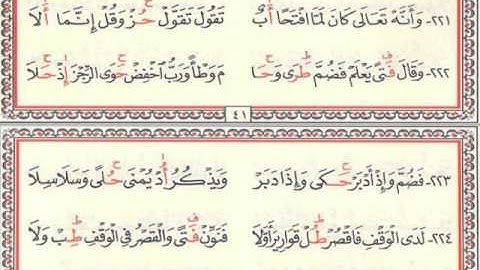 ٢٢١- وَأَنَّهُ تَعَالَى كَانَ لَمَّا افْتَحَا أَبٌ تَقُولَ تَقَوَّلَ حُزْ وَقُلْ إِنَّمَا أَلَا
٢٢٢- وَقَالَ فَتًى يَعْلَمْ فَضُمَّ طَرَى وَحَا مَ وَطْأً وَرَبُّ اخْفِضْ حَوَى الرِّجْزَ إِذْ حَلَا
٤١
٢٢٣- فَضُمَّ وَإِذْ أَدْبَرَ حَكَى وَإِذَا دَبَرْ وَيَذْكُرُ أُدْ يُمْنَى حُلًى وَسَلَاسِلَا
٢٢٤- لَدَى الْوَقْفِ فَاقْصُرْ طُلْ قَوَارِيرَ أَوَّلَا فَنَوِّنْ فَتًى وَالْقَصْرُ فِي الْوَقْفِ طِبْ وَلَا